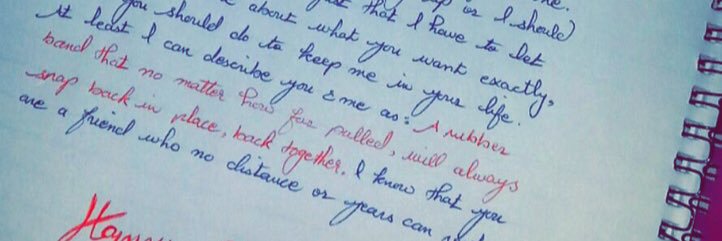 or I should)
that I have to let
about what you want exactly,
you should do to keep me in your life.
At least I can describe you & me as: A rubber
band that no matter how far pulled, will always
snap back in place, back together. I know that you
are a friend who no distance or years can